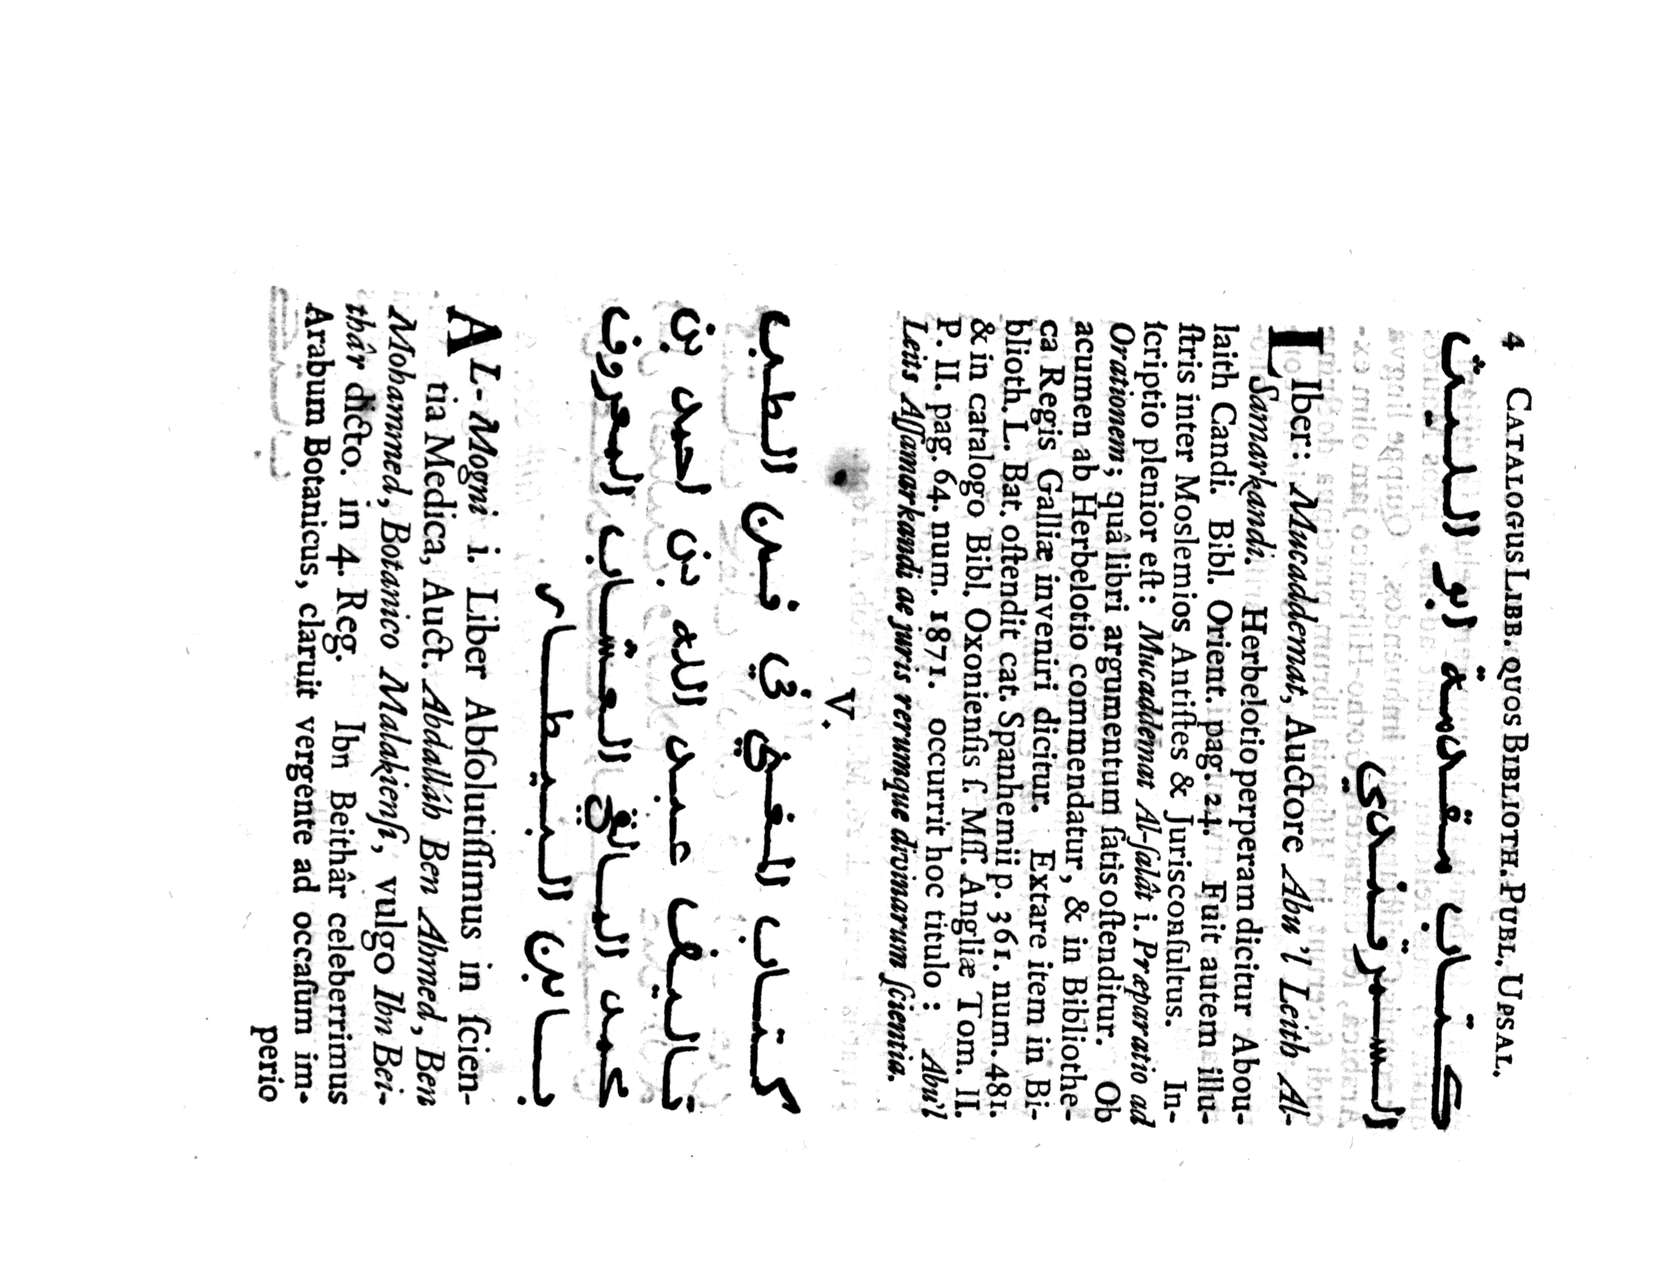 4 CATALOGUS LIBB. QUOS BIBLIOTH. PUBL. UPSAL.
كتاب مقدمة ابو الليث
السمرقندي
LIber: Mucaddemat, Auctore Abu 'l Leith Al-
Samarkandi. Herbelotio perperam dicitur Abou-
laith Candi. Bibl. Orient. pag. 24. Fuit autem illu-
ſtris inter Moslemios Antiſtes & Jurisconſultus. In-
ſcriptio plenior eſt: Mucaddemat Al-ſalât i. Præparatio ad
Orationem; quâ libri argumentum ſatis oſtenditur. Ob
acumen ab Herbelotio commendatur, & in Bibliothe-
ca Regis Galliæ inveniri dicitur. Extare item in Bi-
blioth. L. Bat. oſtendit cat. Spanhemii p. 361. num. 481.
& in catalogo Bibl. Oxonienſis ſ. Mſſ. Angliæ Tom. II.
P. II. pag. 64. num. 1871. occurrit hoc titulo: Abu'l
Leits Aſſamarkandi ae juris rerumque divinarum ſcientia.
V.
كتاب المغني في فن الطب
تاليف عبد الله بن احمد بن
محمد المالقي العشاب المعروف
بابن البيطار
AL-Mogni i. Liber Abſolutiſſimus in ſcien-
tia Medica, Auct. Abdallâh Ben Ahmed, Ben
Mohammed, Botanico Malakienſi, vulgo Ibn Bei-
thâr dicto. in 4. Reg. Ibn Beithâr celeberrimus
Arabum Botanicus, claruit vergente ad occaſum im-
perio